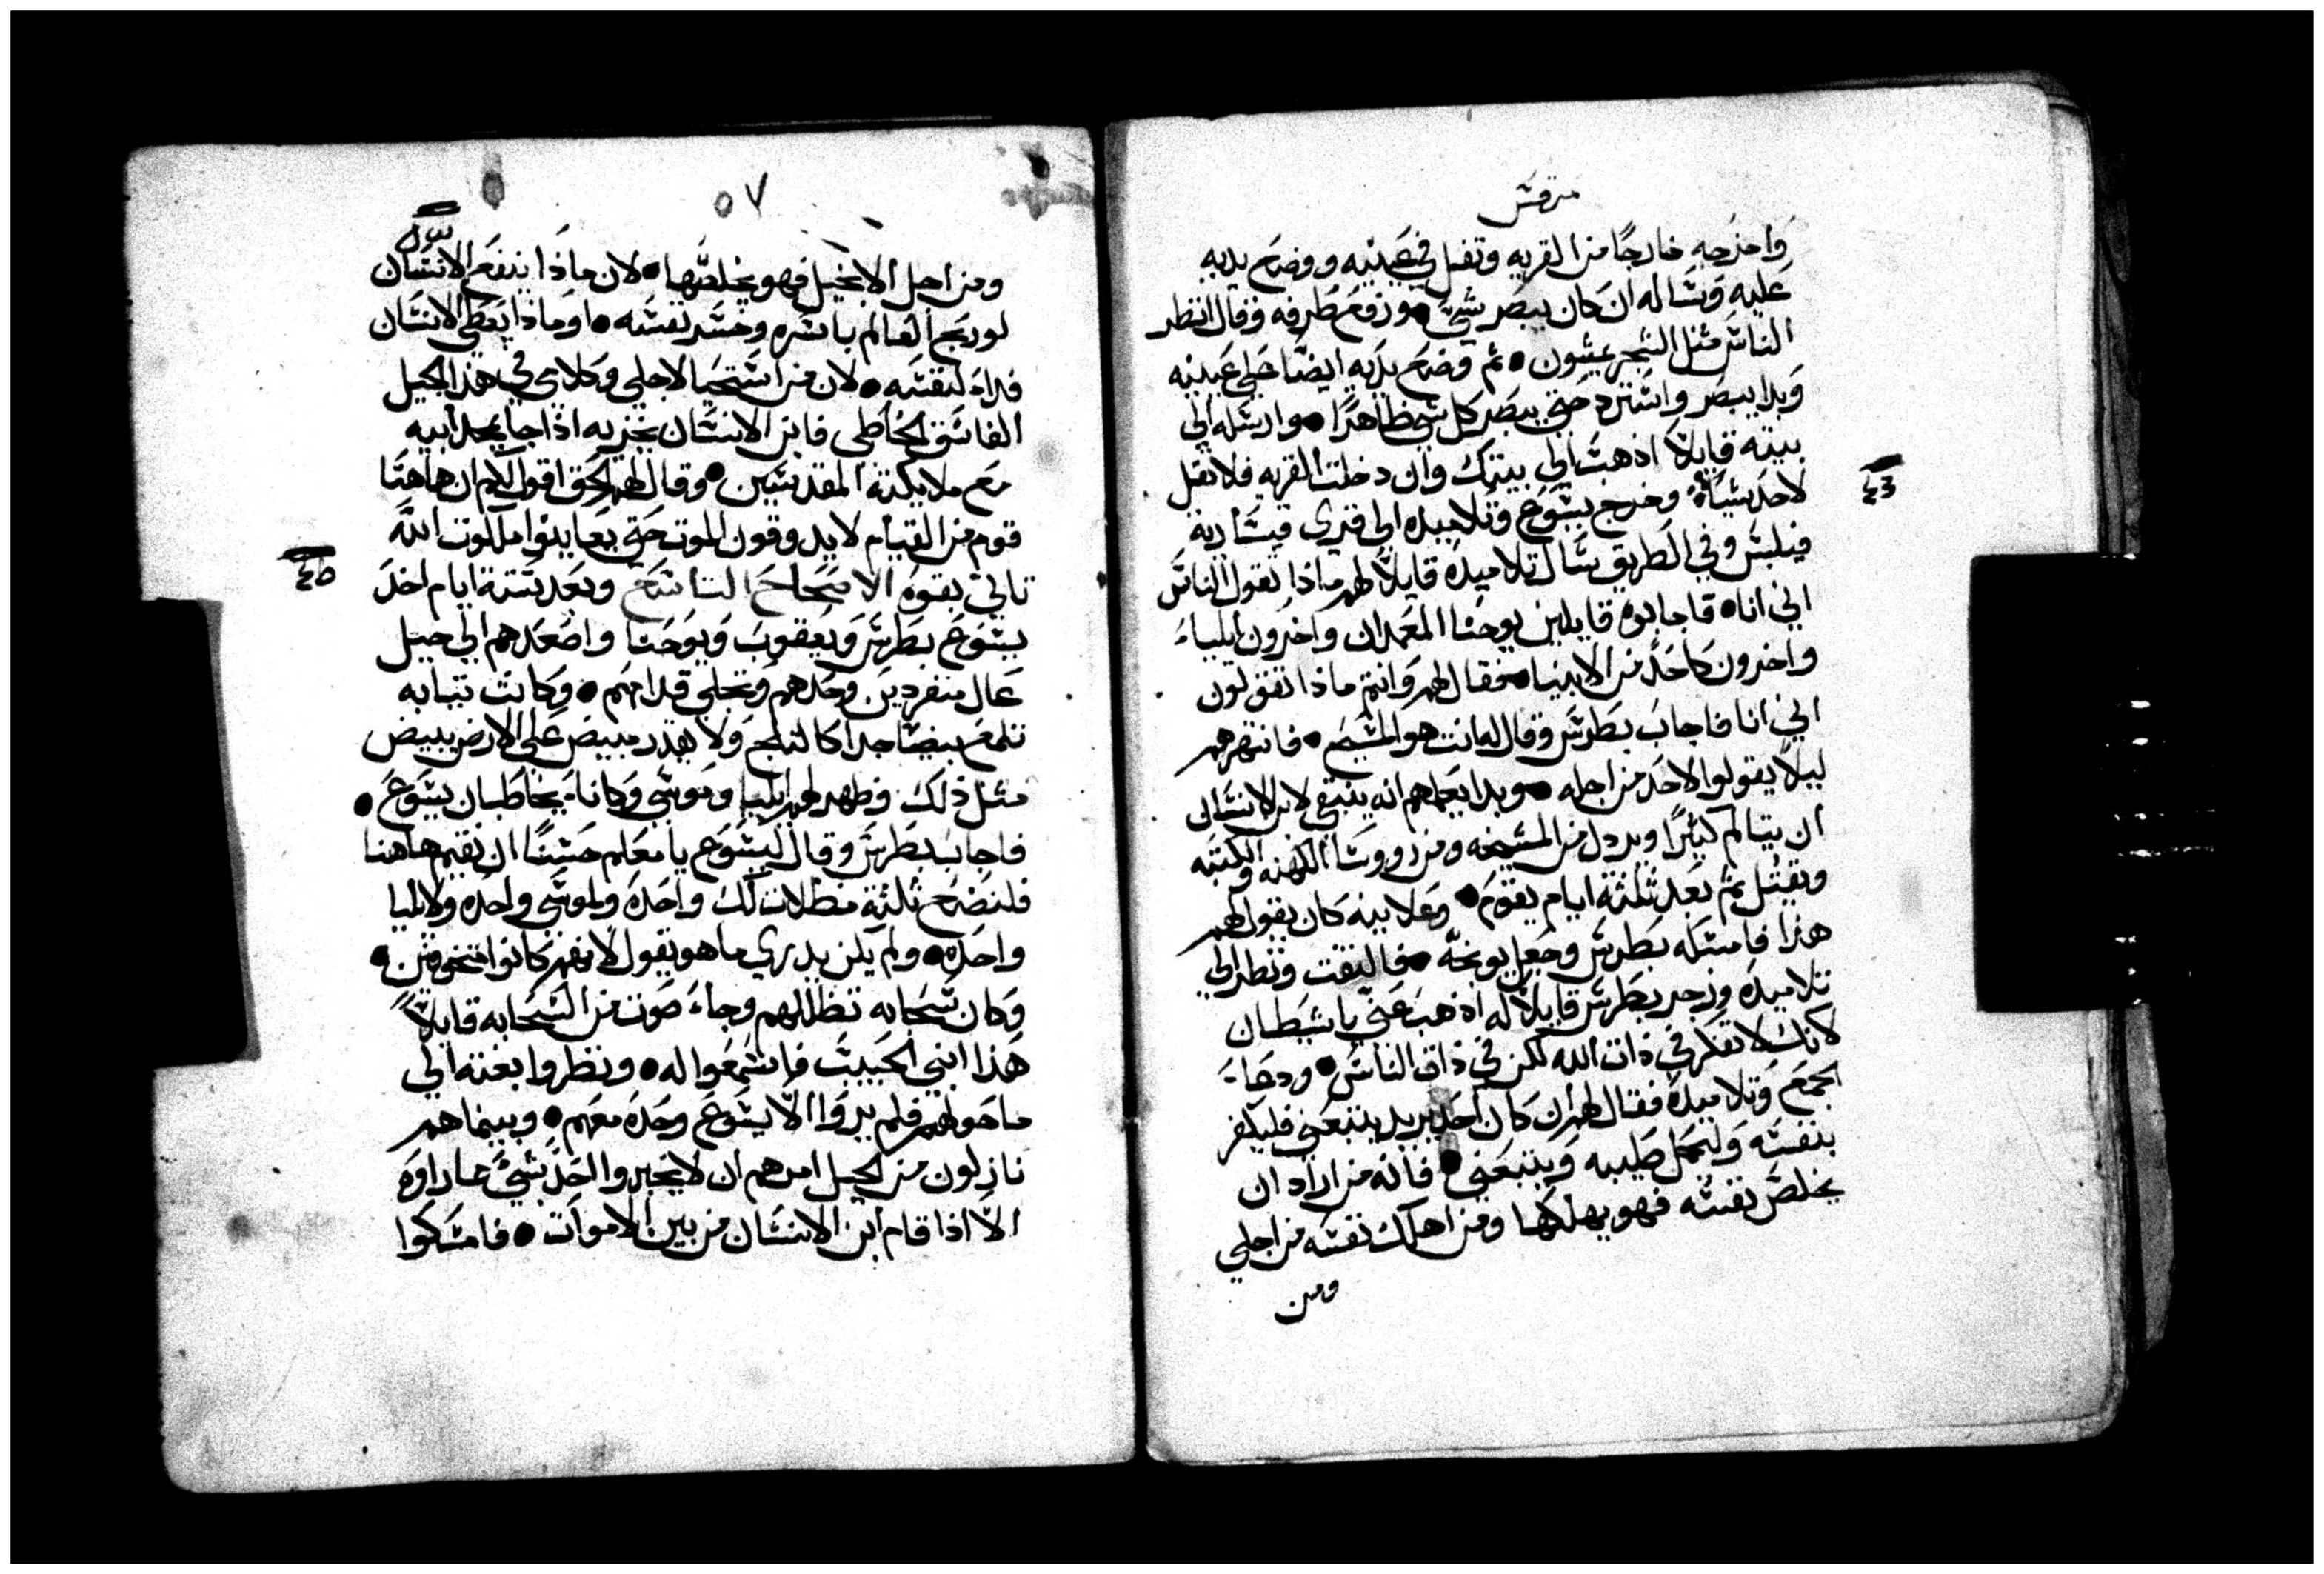 مرقس
واخرجه خارجًا من القريه وتفل في عينيه ووضع يديه
عليه وساله ان كان يبصر شي • ورفع طرفه وقال انظر
الناس مثل الشجر يمشون • ثم وضع يديه ايضًا على عينيه
وبدا يبصر واسترد حتى يبصر كل شي ظاهرًا • وارسله الي
بيته قايلًا اذهب الي بيتك وان دخلت القريه فلا تقل
لاحد شيًا • وخرج يسوع وتلاميده الي قري قيسارية
فيلبس وفي الطريق سال تلاميده قايلًا لهم ماذا تقول الناس
اني انا • فاجابوه قايلين يوحنا المعمدان واخرون ايلياء
واخرون كاحد من الانبيا • فقال لهم وانتم ماذا تقولون
اني انا فاجاب بطرس وقال له انت هو المسيح • فانتهرهم
ليلا يقولوا لاحد من اجله • وبدا يعلمهم انه ينبغي لابن الانسان
ان يتالم كثيرًا ويردل من المشيخه ومن رووسا الكهنه والكتبه
ويقتل ثم بعد ثلثة ايام يقوم • وعلانيه كان يقول لهم
هذا فامسكه بطرس وجعل يوبخه • فالتفت ونظر الي
تلاميده وزجر بطرس قايلًا له اذهب عني يا شيطان
لانك لا تفكر في ذات الله لكن في ذات الناس • ودعاء
الجمع وتلاميده فقال لهم ان كان احد يريد يتبعني فليكفر
بنفسه وليحمل صليبه ويتبعني • فانه من اراد ان
يخلص نفسه فهو يهلكها ومن اهلك نفسه من اجلي
ومن
٥٧
ومن اجل الانجيل فهو يخلصها • لان ماذا ينفع الانسان
لو ربح العالم باسره وخسر نفسه • او ماذا يعطي الانسان
فداء لنفسه • لان من استحيا لاجلي وكلامي في هذا الجيل
الفاسق الخاطي فابن الانسان يخزيه اذا جا بمجد ابيه
مع ملايكته المقدسين • وقال لهم الحق اقول لكم ان هاهنا
قوم من القيام لا يدوقون الموت حتى يعاينوا ملكوت الله
تاتي بقوه الاصحاح التاسع وبعد ستة ايام اخد
يسوع بطرس ويعقوب ويوحنا واصعدهم الي جبل
عال منفردين وحدهم وتجلي قدامهم • وكانت تيابه
تلمع بيضا جدا كالثلج ولا يقدر مبيض على الارض يبيض
مثل ذلك وظهر لهم ايليا وموسي وكانا يخاطبان يسوع •
فاجاب بطرس وقال ليسوع يا معلم حسنًا ان نقيم هاهنا
فلنضع ثلثة مظلات لك واحده ولموسي واحده ولايليا
واحده • ولم يكن يدري ما هو يقول لانهم كانوا متخوفين •
وكان سحابه تظللهم وجاء صوت من السحابه قايلًا
هذا ابني الحبيب فاسمعوا له • ونظروا بغته الي
ما حولهم فلم يروا الا يسوع وحده معهم • وبينما هم
نازلون من الجبل امرهم ان لا يخبروا احد بشي مما راوه
الا اذا قام ابن الانسان من بين الاموات • فامسكوا